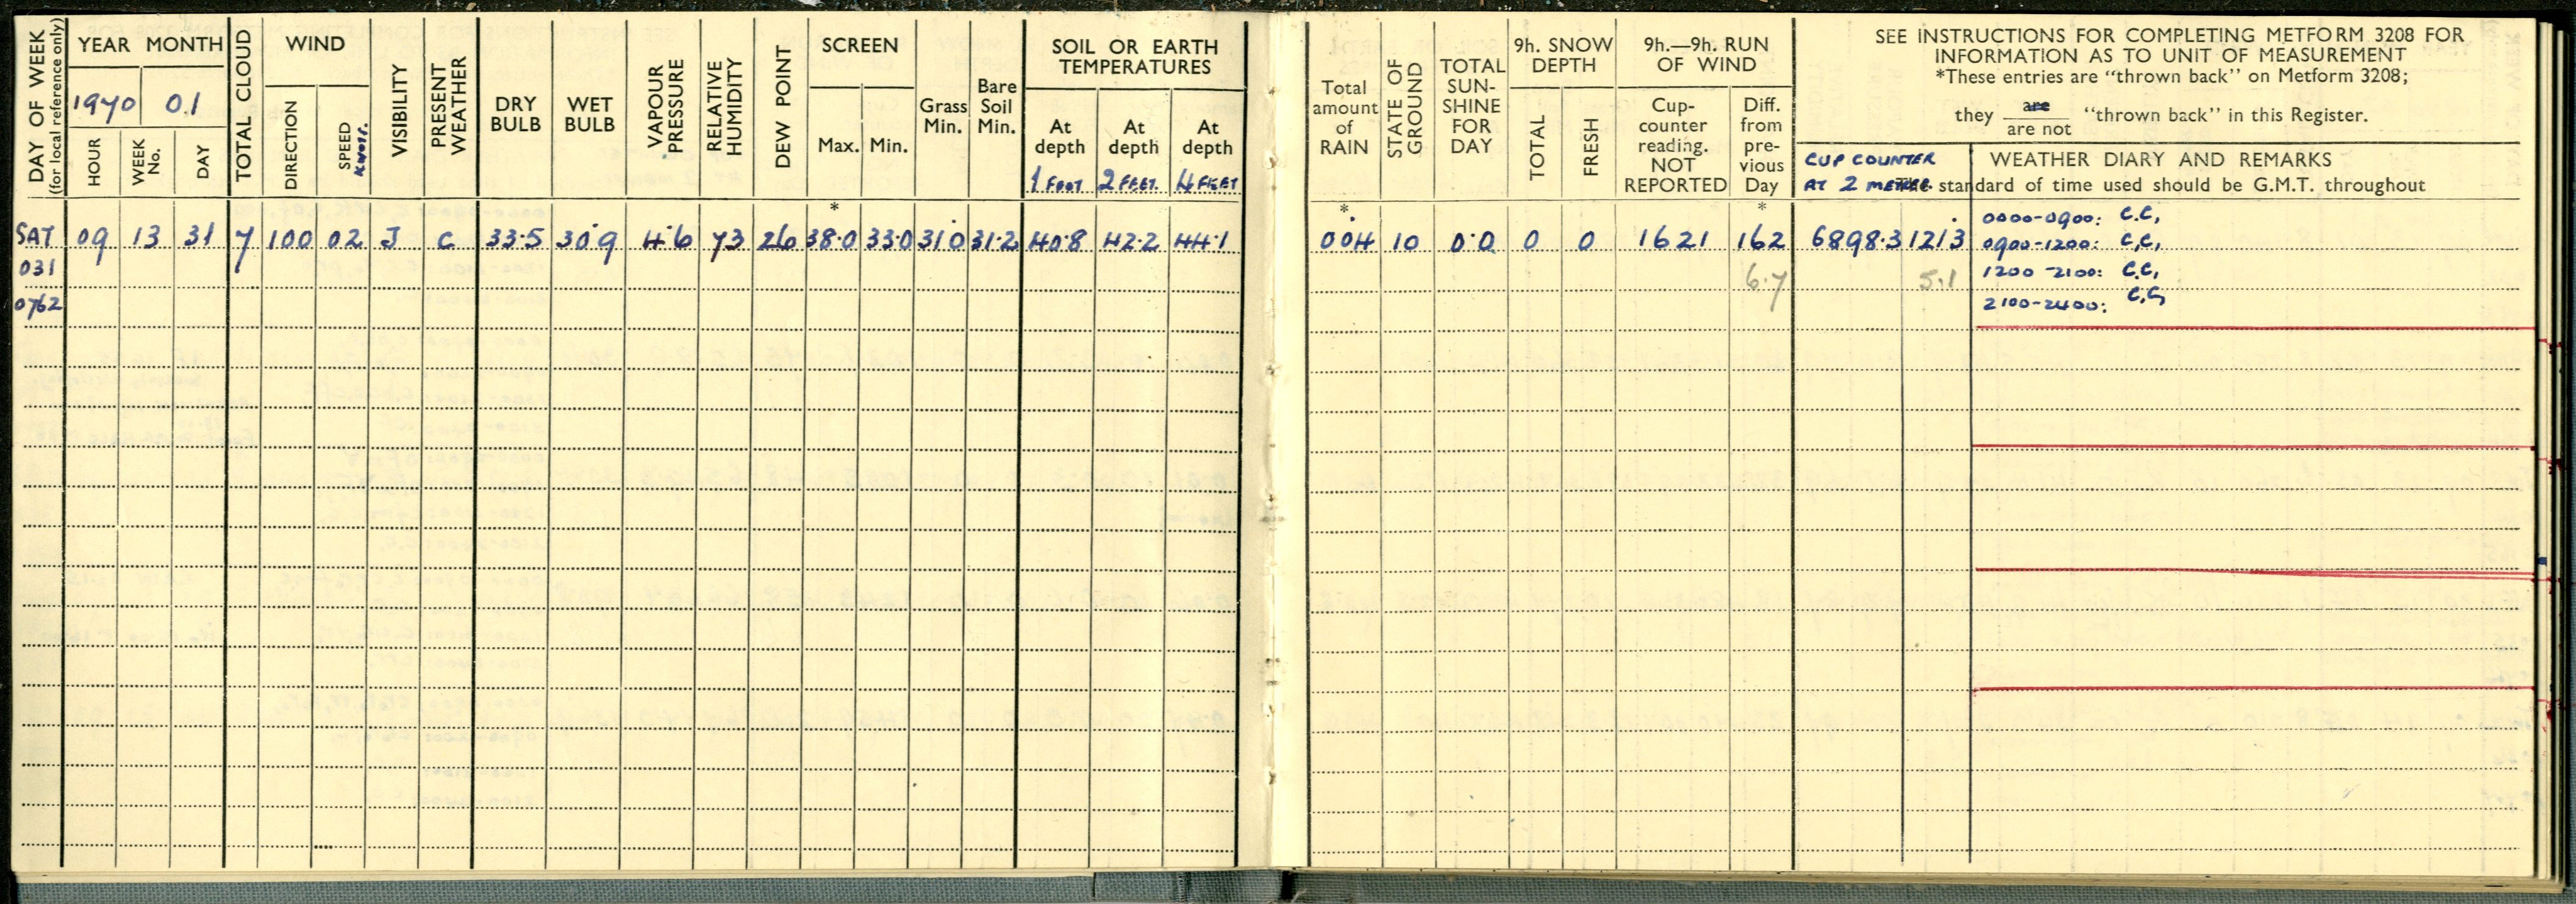 DAY OF WEEK
(for local reference only)
YEAR MONTH
1970 01
HOUR
WEEK No.
DAY
TOTAL CLOUD
WIND
DIRECTION
SPEED
KNOTS.
VISIBILITY
PRESENT WEATHER
DRY BULB
WET BULB
VAPOUR PRESSURE
RELATIVE HUMIDITY
DEW POINT
SCREEN
Max. Min.
Grass Min.
Bare Soil Min.
SOIL OR EARTH TEMPERATURES
At depth
1 FOOT
At depth
2 FEET
At depth
4 FEET
Total amount of RAIN
STATE OF GROUND
TOTAL SUN-SHINE FOR DAY
9h. SNOW DEPTH
TOTAL
FRESH
9h.—9h. RUN OF WIND
Cup-counter reading. NOT REPORTED
Diff. from pre-vious Day
SEE INSTRUCTIONS FOR COMPLETING METFORM 3208 FOR
INFORMATION AS TO UNIT OF MEASUREMENT
*These entries are "thrown back" on Metform 3208;
they are / are not "thrown back" in this Register.
CUP COUNTER
AT 2 METRES.
WEATHER DIARY AND REMARKS
The standard of time used should be G.M.T. throughout
* * *
SAT 09 13 31 7 100 02 J C 33.5 30.9 4.6 73 26 38.0 33.0 31.0 31.2 40.8 42.2 44.1 004 10 0.0 0 0 1621 162 6898.3 121.3
031
0762
6.7 5.1
0000-0900: C.C,
0900-1200: C,C,
1200-2100: C.C,
2100-2400: C,C,